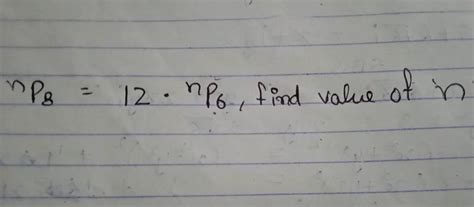 ⁿP₈ = 12 · ⁿP₆, find value of n